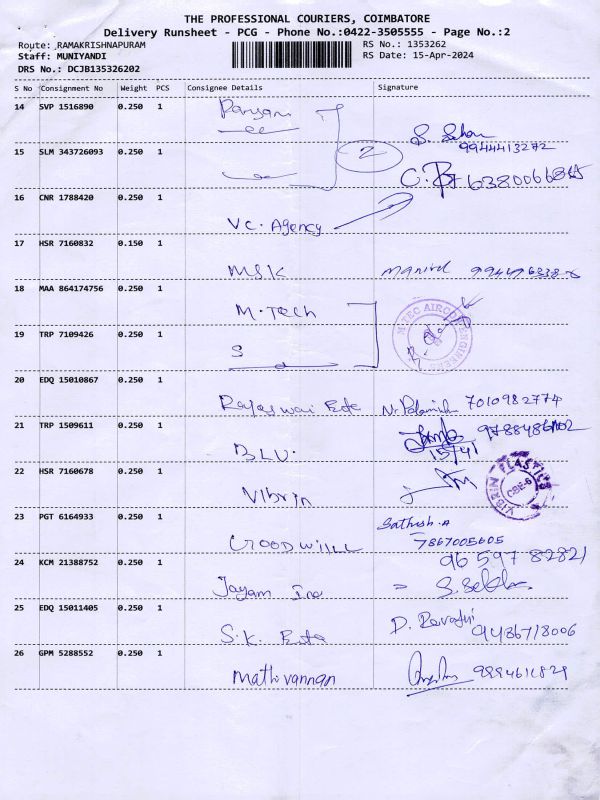 THE PROFESSIONAL COURIERS, COIMBATORE
Delivery Runsheet - PCG - Phone No.:0422-3505555 - Page No.:2
Route: RAMAKRISHNAPURAM RS No.: 1353262
Staff: MUNIYANDI RS Date: 15-Apr-2024
DRS No.: DCJB135326202
S No Consignment No Weight PCS Consignee Details Signature
14 SVP 1516890 0.250 1
2
S. Sekar
9944413272
15 SLM 343726093 0.250 1
16 CNR 1788420 0.250 1
VC. Agency
17 HSR 7160832 0.150 1
MSK
18 MAA 864174756 0.250 1
M. Tech
19 TRP 7109426 0.250 1
S
20 EDQ 15010867 0.250 1
7010982774
21 TRP 1509611 0.250 1
BLU.
22 HSR 7160678 0.250 1
Vibrin
VIBRIN PLASTICS CBE-6
23 PGT 6164933 0.250 1
Sathish.A
7867005605
GOODWIILL
24 KCM 21388752 0.250 1
96 597 82821
Jayam Inc
25 EDQ 15011405 0.250 1
S.K.
26 GPM 5288552 0.250 1
Mathivannan